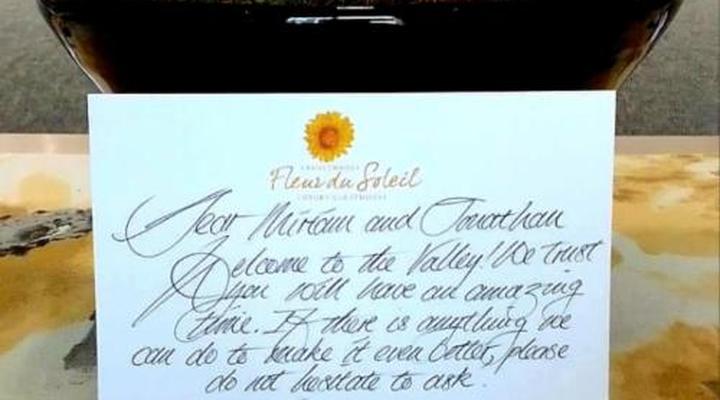 FRANSCHHOEK
Fleur du Soleil
LUXURY GUESTHOUSE
Dear Miriam and Jonathan
Welcome to the Valley! We trust
you will have an amazing
time. If there is anything we
can do to make it even better, please
do not hesitate to ask.